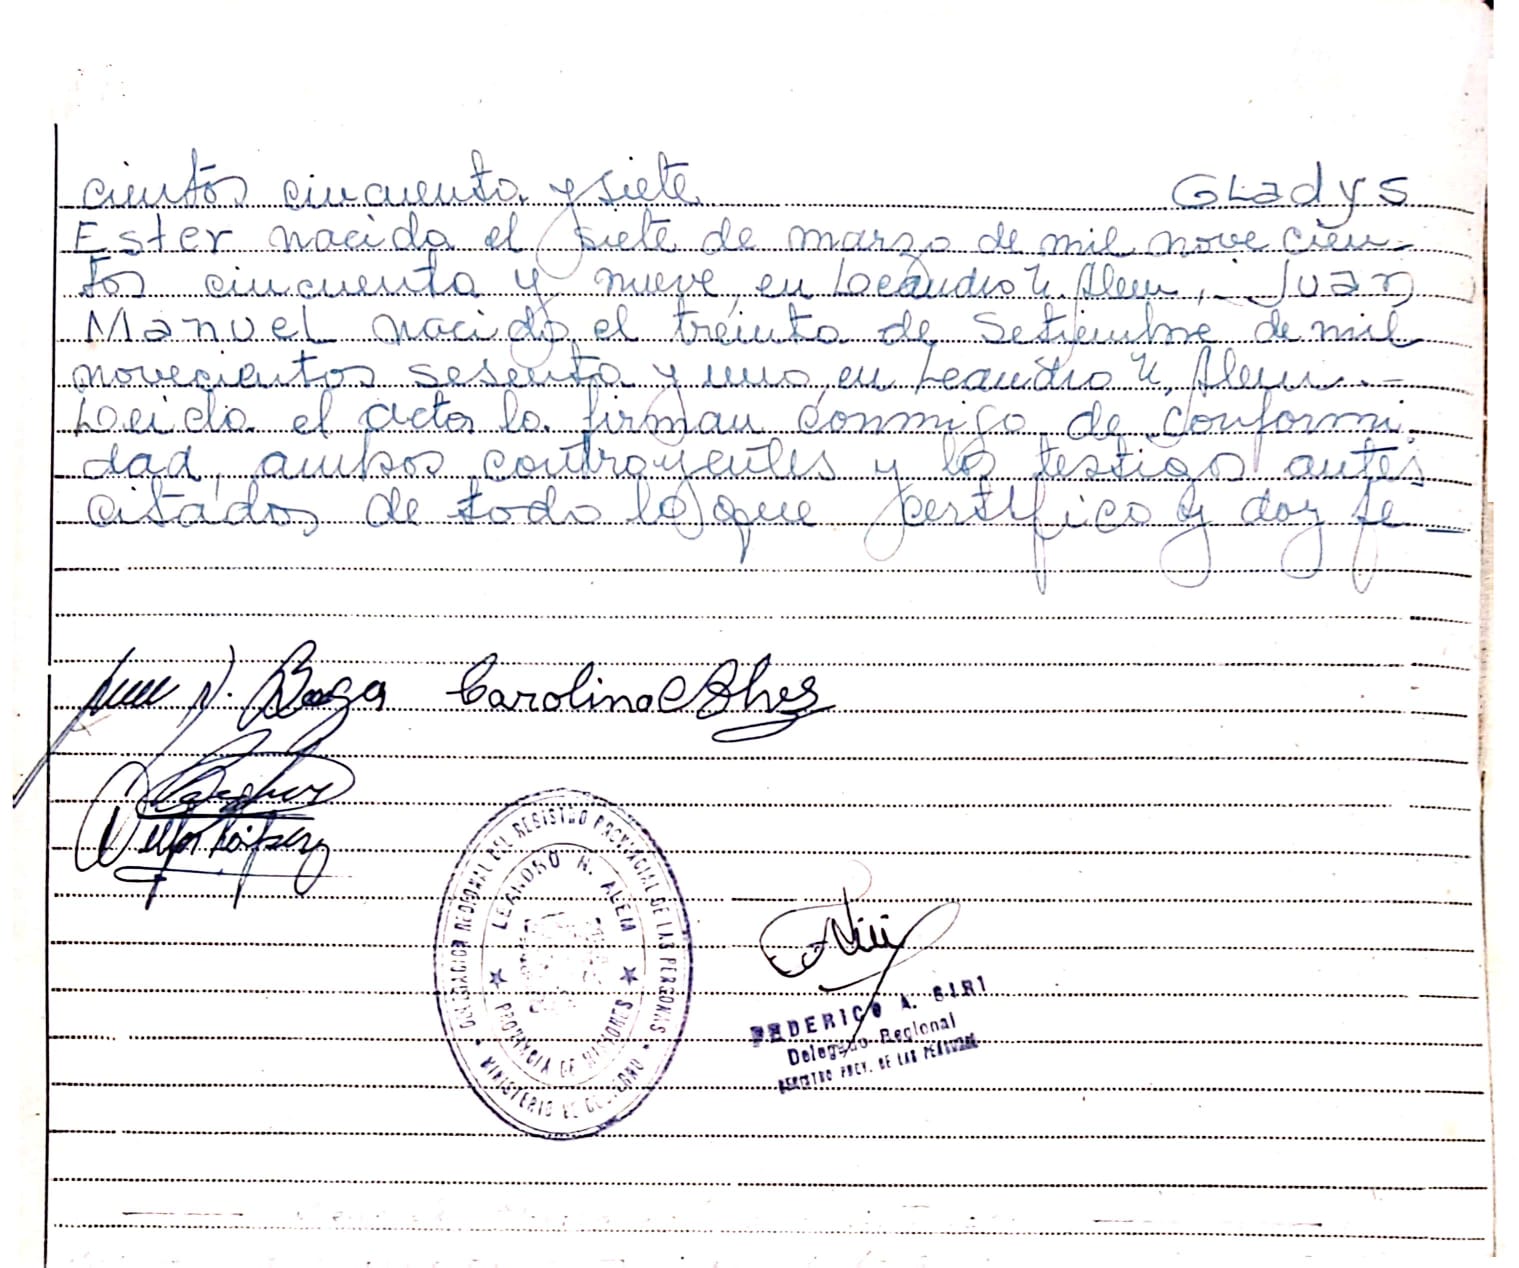 cientos cincuenta y siete Gladys
Ester nacida el siete de marzo de mil novecien-
tos cincuenta y nueve, en Leandro N. Alem, Juan
Manuel nacido, el treinta de Setiembre de mil
novecientos sesenta y uno, en Leandro N. Alem.-
Leida el acta la firman conmigo de conformi-
dad, ambos contrayentes y los testigos antes
citados de todo lo que certifico y doy fe-
Carolina
DELEGACION REGIONAL DEL REGISTRO PROVINCIAL DE LAS PERSONAS
LEANDRO N. ALEM
PROVINCIA DE MISIONES
MINISTERIO DE GOBIERNO
FEDERICO A. SIRI
Delegado Regional
REGISTRO PROV. DE LAS PERSONAS